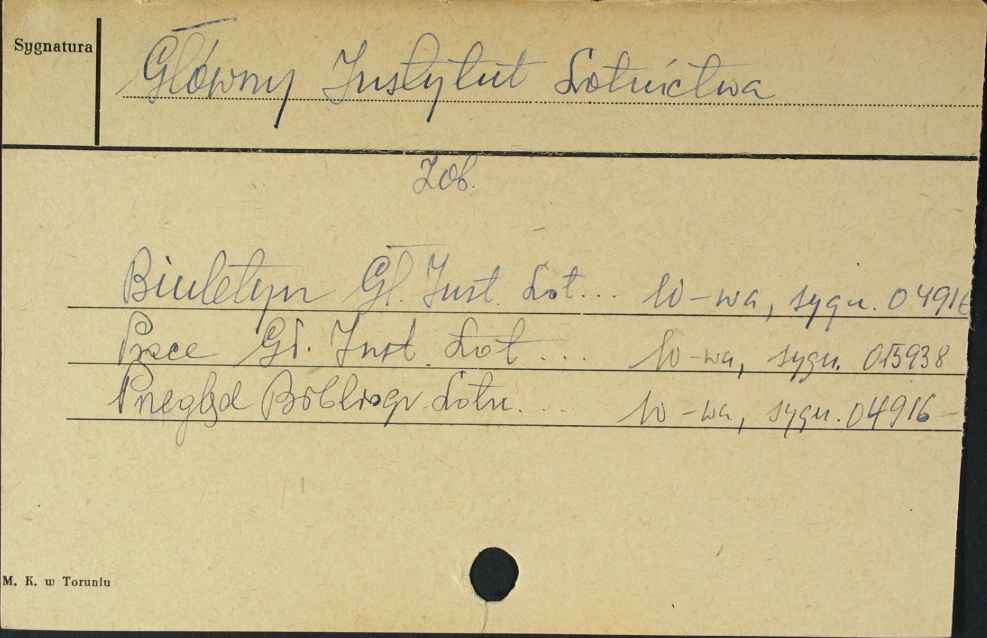 Sygnatura
Główny Instytut Lotnictwa
Zob.
Biuletyn Gł. Inst. Lot... W-wa, sygn. 04916
Prace Gł. Inst. Lot... W-wa, sygn. 015938
Przegląd Bibliogr. Lotn.... W-wa, sygn. 04916
M. K. w Toruniu